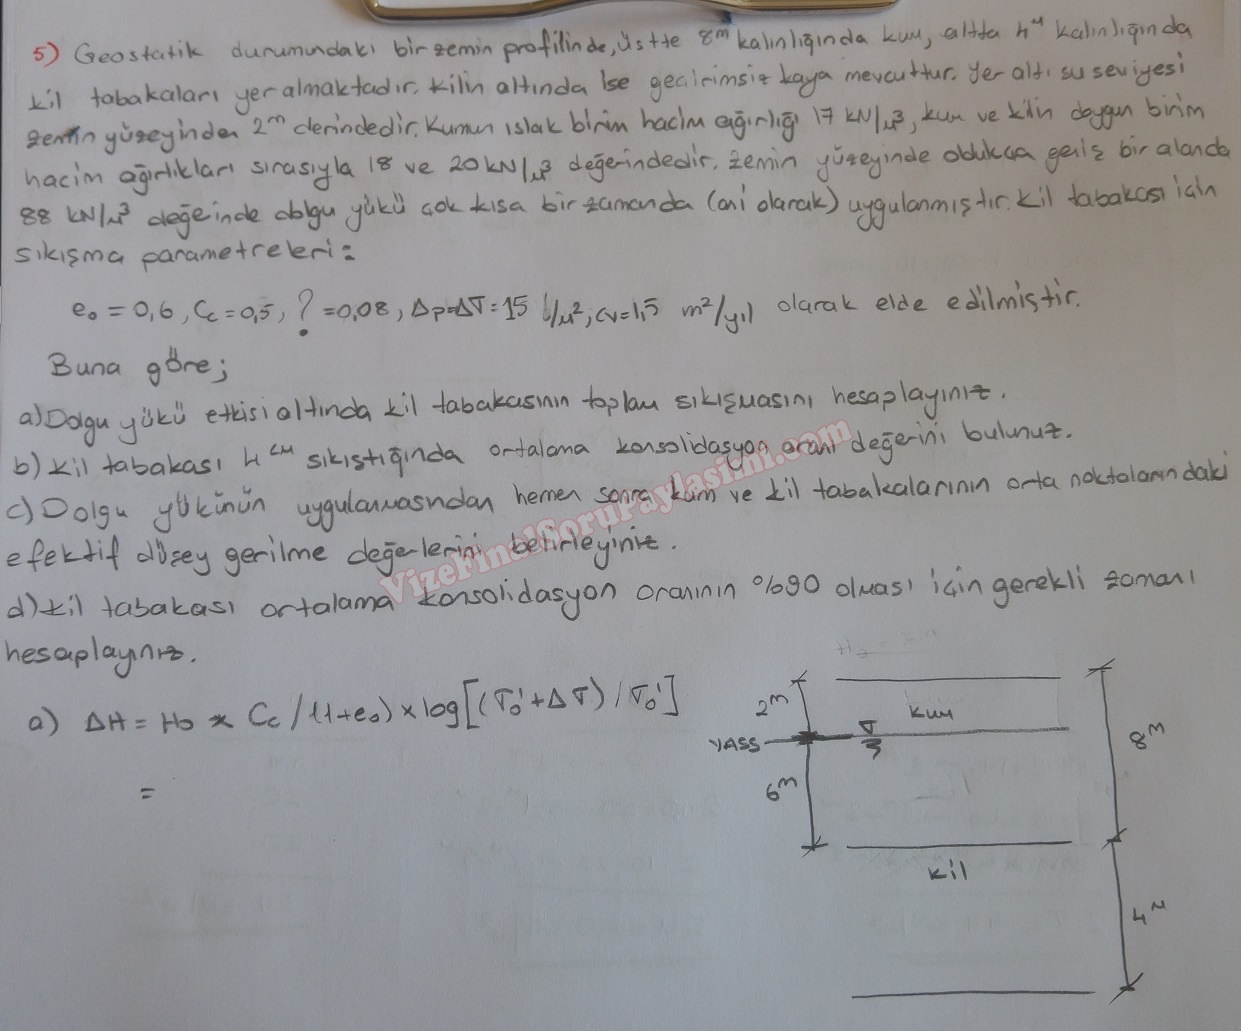 5) Geostatik durumundaki bir zemin profilinde, üstte 8m kalınlığında kum, altta 4m kalınlığında
kil tabakaları yer almaktadır. Kilin altında ise geçirimsiz kaya mevcuttur. Yer altı su seviyesi
zemin yüzeyinden 2m derindedir. Kumun ıslak birim hacim ağırlığı 17 kN/m³, kum ve kilin doygun birim
hacim ağırlıkları sırasıyla 18 ve 20 kN/m³ değerindedir. Zemin yüzeyinde oldukça geniş bir alanda
88 kN/m³ değeinde dolgu yükü çok kısa bir zamanda (ani olarak) uygulanmıştır. Kil tabakası için
sıkışma parametreleri:
e₀ = 0,6, Cc = 0,5, ? = 0,08, Δp=Δσ = 15 t/m², cv=1,5 m²/yıl olarak elde edilmiştir.
Buna göre;
a) Dolgu yükü etkisi altında kil tabakasının toplam sıkışmasını hesaplayınız.
b) Kil tabakası 4cm sıkıştığında ortalama konsolidasyon oranı değerini bulunuz.
c) Dolgu yükünün uygulamasından hemen sonra kum ve kil tabakalarının orta noktalarındaki
efektif düşey gerilme değerlerini belirleyiniz.
d) Kil tabakası ortalama konsolidasyon oranının %90 olması için gerekli zamanı
hesaplayınız.
VizeFinalSoruPaylasimi.com
a) ΔH = H₀ x Cc / (1+e₀) x log[(σ₀' + Δσ) / σ₀']
=
2m
kum
YASS
6m
8m
kil
4m